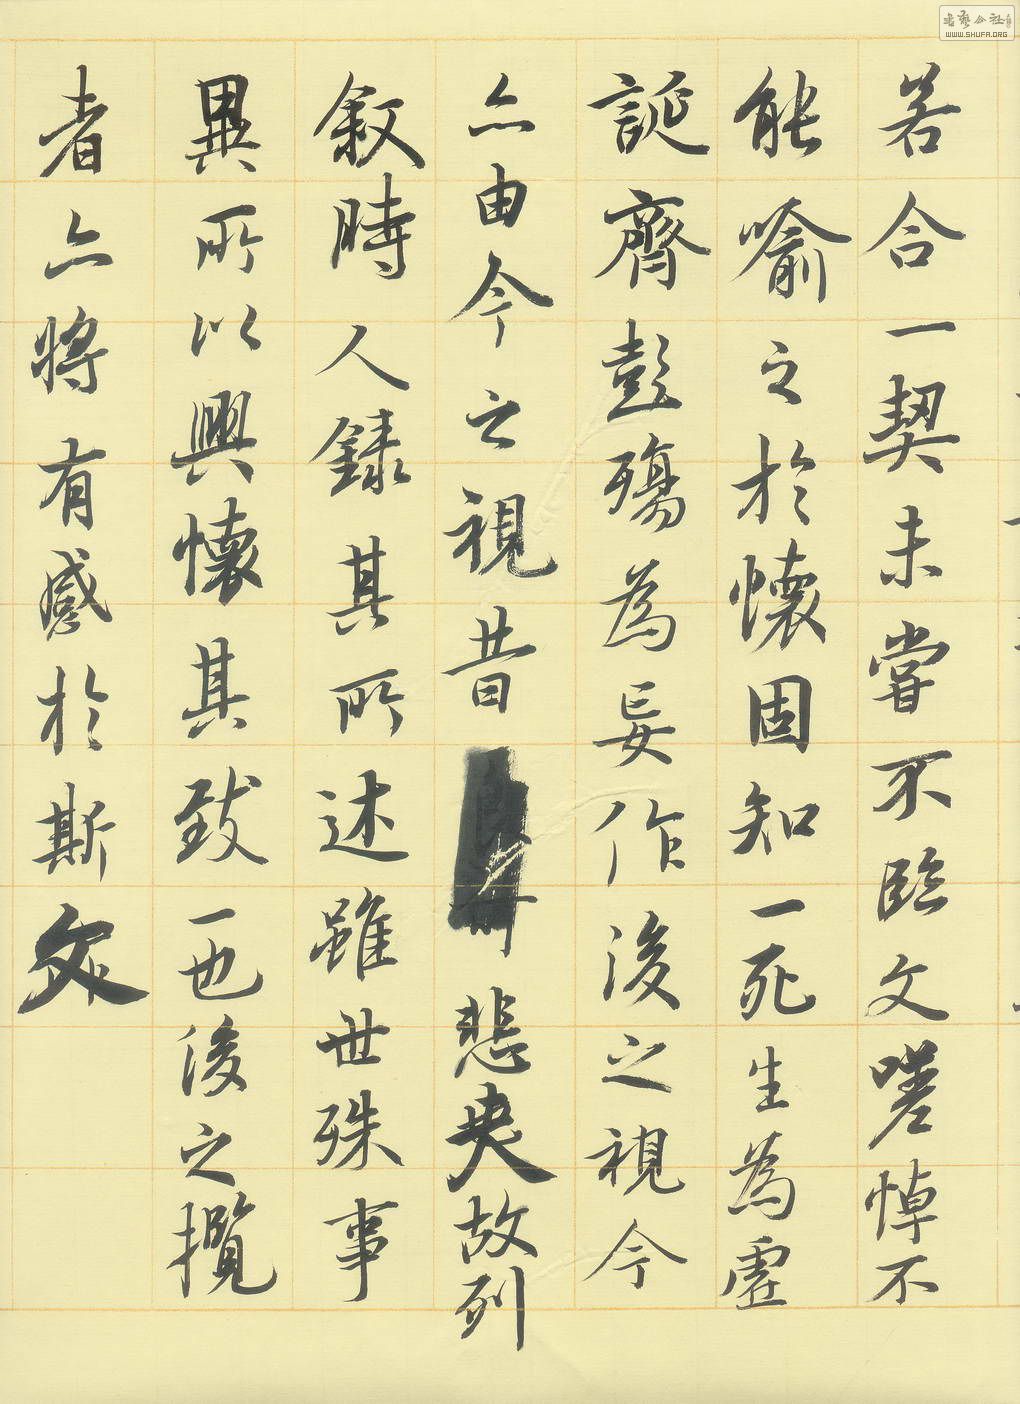 若合一契未嘗不臨文嗟悼不
能喻之於懷固知一死生為虛
誕齊彭殤為妄作後之視今
亦由今之視昔悲夫故列
叙時人錄其所述雖世殊事
異所以興懷其致一也後之攬
者亦將有感於斯文
WWW.SHUFA.ORG